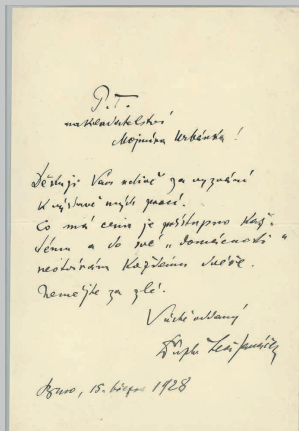 P. T.
nakladatelství
Mojmíra Urbánka!
Děkuji Vám uctivě za vyzvání
k výstavě mých prací.
Co má cenu je přístupno každ-
ému a do své „domácnosti"
neotvírám každému dvéře.
Nemějte za zlé.
V úctě oddaný
Leoš Janáček
Brno, 15. března 1928